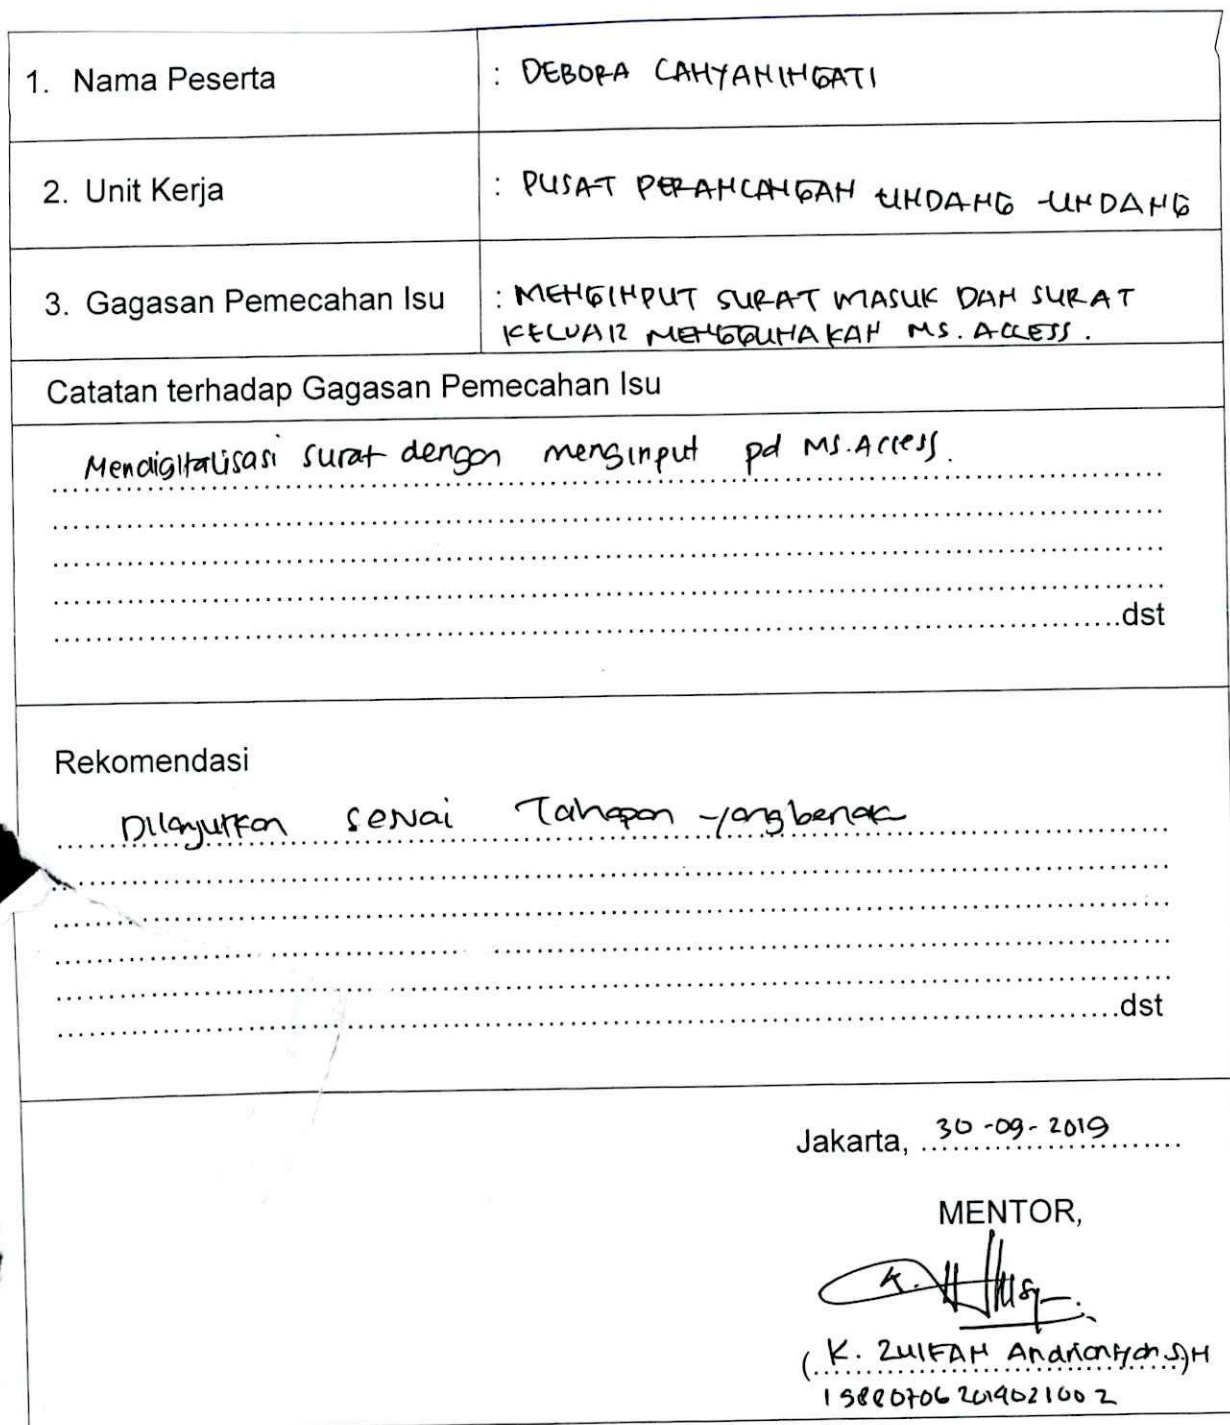 1. Nama Peserta : DEBORA CAHYANINGATI
2. Unit Kerja : PUSAT PERANCANGAN UNDANG-UNDANG
3. Gagasan Pemecahan Isu : MENGINPUT SURAT MASUK DAN SURAT
KELUAR MENGGUNAKAN MS. ACCESS.
Catatan terhadap Gagasan Pemecahan Isu
Mendigitalisasi surat dengan menginput pd MS. Access.
dst
Rekomendasi
Dilanjutkan sesuai Tahapan yang benar
dst
Jakarta, 30-09-2019
MENTOR,
(K. ZULFAN Andriansyah S.)H